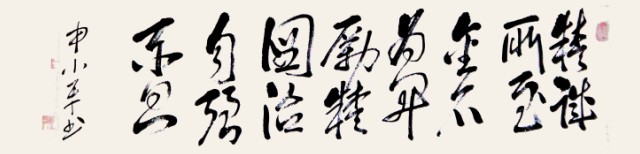 精诚
所至
金石
为开
励精
图治
自强
不息
申小平书